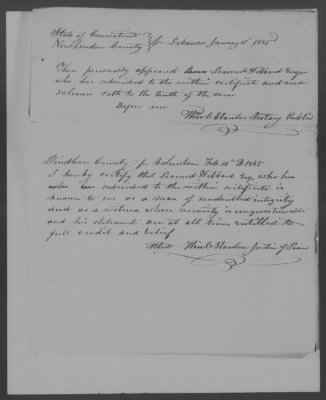 State of Connecticut
New London County } ss Lebanon January 15 1845
Then personally appeared Learned Hibbard Esqr
who has subscribed to the within certificate and made
solemn oath to the truth of the same
Before me
Notary Public
Windham County ss Columbus Feb. 18 1845
I hereby certify that Learned Hibbard Esq. who has
who has subscribed to the within certificate is
known to me as a man of undoubted integrity
and as a witness whose veracity is unquestionable
and his statements are at all times entitled to
full credit and belief
Attest Justice of Peace